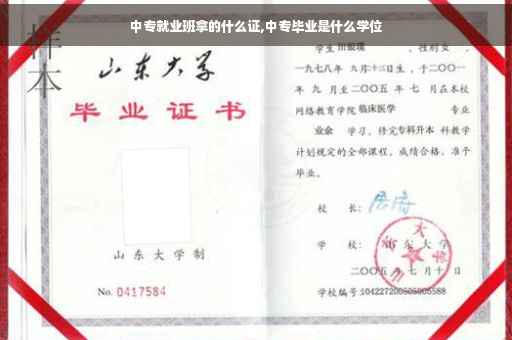 中专就业班拿的什么证,中专毕业是什么学位
样本
山东大学
毕业证书
山东大学制
No. 0417584
学生
,性别女,
一九七八年 九月十三日生,于二〇〇一
年 九 月至二〇〇五 年 七 月在本校
网络教育学院 临床医学 专业
业余 学习,修完专科升本 科教学
计划规定的全部课程,成绩合格,准予
毕业。
校 长:
学 校: 山东大学
二〇〇五 年 七 月 十 日
学校编号: